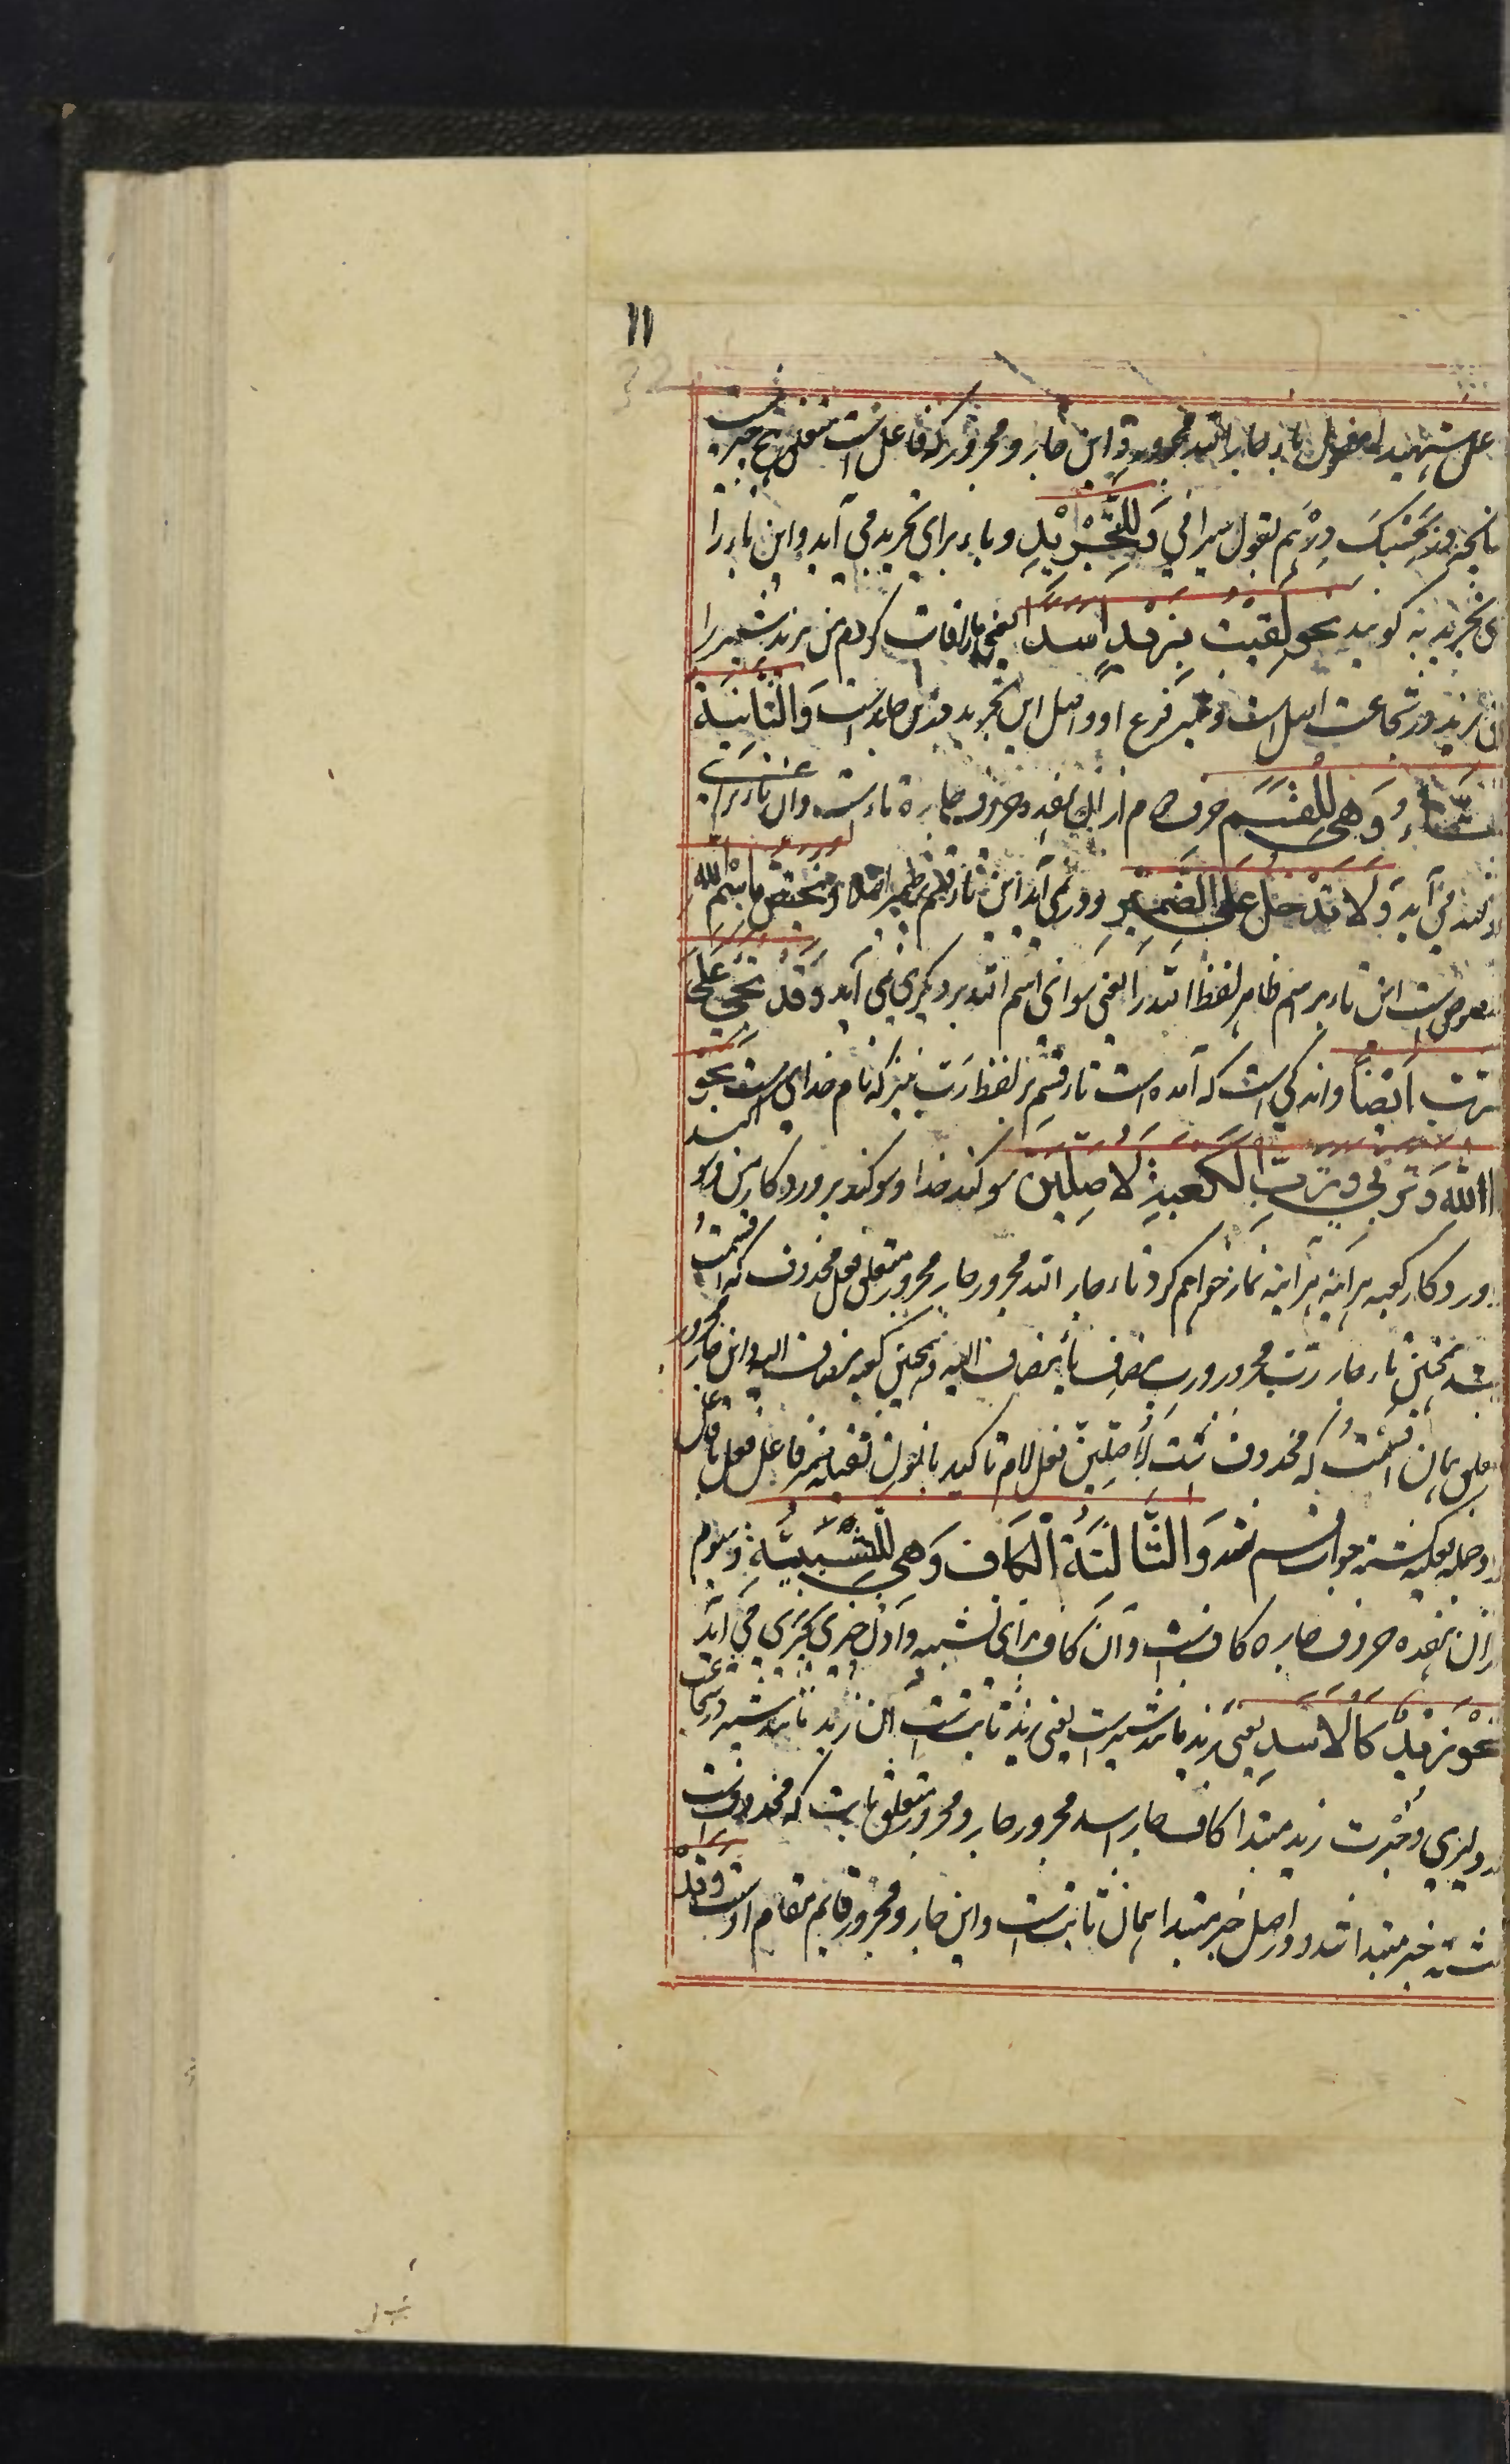 11
32
عل شهیدا مفعول باء جار الله مجرور و این جار و مجرور که فاعل است متعلق هیچ چیز نیست
بحسبک درهم بقول سیرافی وَلِلتَّجْرِيْدِ و باء برای تجرید می آید و این باء را
ی تجریدیه گویند نحو لَقِيْتُ بِزَيْدٍ اَسَدًا یعنی ملاقات کردم من بزید شیر را
زید در شجاعت اصل است و شیر فرع او و اصل این تجرید وَالثَّانِيَةُ
التَّاءُ وَهِيَ لِلْقَسَمِ حرف دوم از ان هفده حروف جاره تاء است و ان تاء برای
سوگند می آید وَلَا تَدْخُلُ عَلَى الضَّمِيْرِ و در نمی آید این تاء قسم بر ضمیر اصلا وَيَخْتَصُّ بِاسْمِ اللهِ
مخصوص است این تاء بر اسم ظاهر لفظ الله را یعنی سوای اسم الله بر دیگری نمی آید وَقَدْ يَجِيْئُ عَلَى
رَبّ اَيْضًا و اندکی است که آمده است تاء قسم بر لفظ رَبّ نیز که نام خدای است نحو
تَاللهِ وَتَرَبِّيْ وَتَرَبِّ الْكَعْبَةِ لَاُصَلِّيَنَّ سوگند خدا و سوگند پروردگار من و سوگند
پروردگار کعبه هر اینه هر اینه نماز خواهم کرد تاء جار الله مجرور جار مجرور متعلق فعل محذوف که اقسمتُ
همچنین تاء جار رَبّ مجرور و رب مضاف یاء مضاف الیه و همچنین کعبه مضاف الیه و این جار مجرور
متعلق همان اقسمتُ که محذوف است لَاُصَلِّيَنَّ فعل لام تاکید بانون ثقیله ضمیر فاعل فعل با فاعل
و جمله فعلیه گشته جواب قسم شد وَالثَّالِثَةُ الْكَاف وَهِيَ لِلتَّشْبِيْهِ و سوم
از ان هفده حروف جاره کاف است و آن کاف برای تشبیه دادن چیزی بچیزی می آید
نَحْوُ زَيْدٌ كَالْاَسَدِ یعنی زید مانند شیر است یعنی زید ثابت است آن زید مانند شیر در شجاعت
و دلیری و جرئت زید مبتدا کاف جار اسد مجرور جار و مجرور متعلق ثابت که محذوف است
گشته خبر مبتدا شد و در اصل خبر مبتدا همان ثابت است و این جار و مجرور قایم مقام اوست وَقَدْ